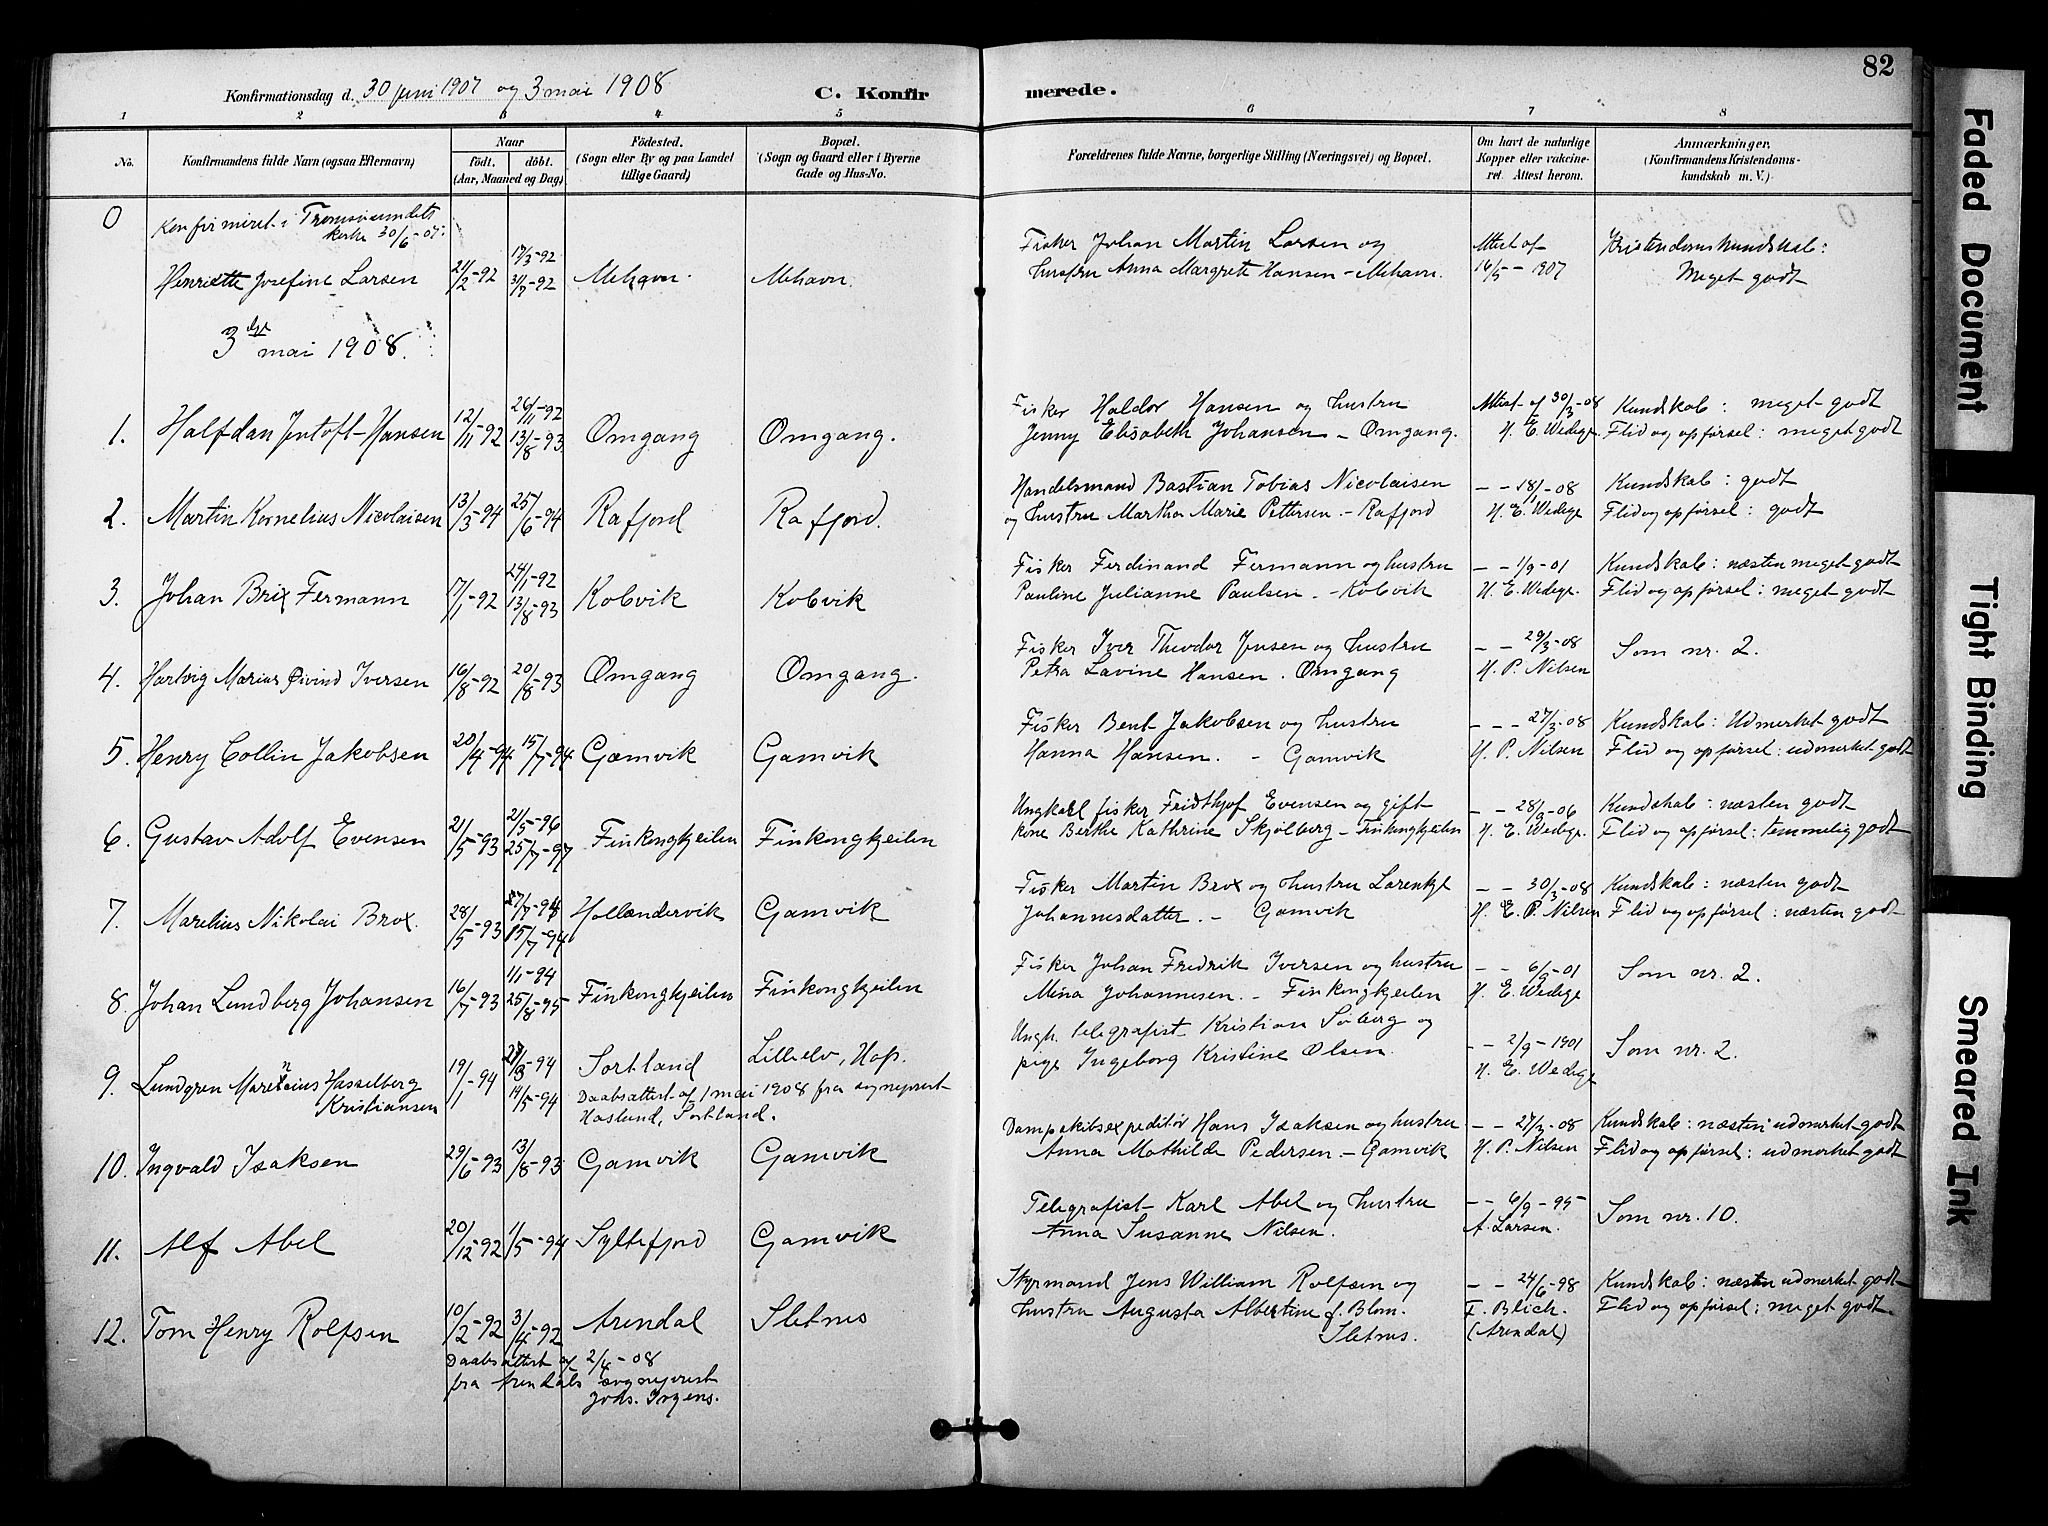 82
Konfirmationsdag d. 30 juni 1907 og 3 mai 1908
C. Konfirmerede.
1 2 3 4 5 6 7 8
No.
Konfirmandens fulde Navn (ogsaa Efternavn)
Naar
født. døbt.
(Aar, Maaned og Dag)
Fødested.
(Sogn eller By og paa Landet
tillige Gaard)
Bopæl.
(Sogn og Gaard eller i Byerne
Gade og Hus-No.
Forældrenes fulde Navne, borgerlige Stilling (Næringsvei) og Bopæl.
Om havt de naturlige
Kopper eller vakcine-
ret. Attest herom.
Anmærkninger.
(Konfirmandens Kristendoms-
kundskab m. V.)
0
Konfirmeret i Tromsøsundets
kirke 30/6-07:
Henriette Josefine Larsen 21/2-92 17/3-92 31/7-92 Mehavn. Mehavn.
Fisker Johan Martin Larsen og
hustru Anna Margrete Hansen - Mehavn.
Attest af
16/5 - 1907
Kristendomskundskab:
Meget godt
3dje mai 1908.
1. Halfdan Jentoft Hansen 12/11-92 26/11-92 13/8-93 Omgang Omgang.
Fisker Haldor Hansen og hustru
Jenny Elisabeth Johansen - Omgang.
Attest af 30/3-08
H. E. Wedege.
Kundskab: meget godt
Flid og opførsel: meget godt
2. Martin Kornelius Nicolaisen 13/3-94 25/6-94 Rafjord Rafjord.
Handelsmand Bastian Tobias Nicolaisen
og hustru Martha Marie Pettersen. - Rafjord
- - 18/1-08
H. E. Wedege
Kundskab: godt
Flid og opførsel: godt
3. Johan Brix Fermann 17/1-92 24/1-92 13/8-93 Kobvik Kobvik
Fisker Ferdinand Fermann og hustru
Pauline Julianne Paulsen. - Kobvik
- - 1/9-01
H. E. Wedege.
Kundskab: næsten meget godt
Flid og opførsel: meget godt
4. Hartvig Marius Øivind Iversen 16/8-92 20/8-93 Omgang Omgang.
Fisker Iver Theodor Jensen og hustru
Petra Lavine Hansen. Omgang
- - 29/3-08
H. P. Nilsen
Som nr. 2.
5. Henry Collin Jakobsen 20/4-94 15/7-94 Gamvik Gamvik
Fisker Bent Jakobsen og hustru
Hanna Hansen. - Gamvik
- - - 27/3-08
H. P. Nilsen
Kundskab: Udmerket godt
Flid og opførsel: udmerket godt
6. Gustav Adolf Evensen 21/5-93 21/5-96 25/7-97 Finkongkjeilen Finkongkjeilen
Ungkarl fisker Fridthjof Evensen og gift
kone Berthe Kathrine Skjølberg - Finkongkjeilen
- - 28/9-06
H. E. Wedege.
Kundskab: næsten godt
Flid og opførsel: temmelig godt
7. Marelius Nikolai Brox. 28/5-93 27/7-94 15/7-94 Hollændervik Gamvik
Fisker Martin Brox og hustru Lorentze
Johannesdatter. - Gamvik
- - 30/3-08
H. E. P. Nilsen
Kundskab: næsten godt
Flid og opførsel: næsten godt
8. Johan Lundberg Johansen 16/7-93 1/1-94 25/8-95 Finkongkjeilen Finkongkjeilen
Fisker Johan Fredrik Iversen og hustru
Mina Johannesen. - Finkongkjeilen
- - 6/9-01
H. E. Wedege
Som nr. 2.
9. Lundgren Marenius Hasselberg
Kristiansen 19/1-94 27/3-94 14/5-94 Sortland Lilleelv, Hop.
Daabsattest af 1 mai 1908 fra sogneprest
Haslund, Sortland.
Ungk. telegrafist Kristian Soberg og
pige Ingeborg Kristine Olsen.
- - 2/9-1901
H. E. Wedege
Som nr. 2.
10. Ingvald Isaksen 29/6-93 13/8-93 Gamvik Gamvik
Dampskibsexpeditør Hans Isaksen og hustru
Anna Mathilde Pedersen - Gamvik
- - 27/3-08
H. P. Nilsen
Kundskab: næsten udmerket godt
Flid og opførsel: udmerket godt
11. Alf Abel 20/12-92 1/5-94 Syltefjord Gamvik
Telegrafist Karl Abel og hustru
Anna Susanne Nilsen.
- - 6/9-95
A. Larsen.
Som nr. 10.
12. Tom Henry Rolfsen 10/2-92 3/4-92 Arendal Sletnes
Daabsattest af 2/4-08
fra Arendals sogneprest
Johs. Irgens.
Styrmand Jens William Rolfsen og
hustru Augusta Albertine f. Blom.
Sletnes.
- - 24/6-98
F. Blich.
(Arendal)
Kundskab: næsten udmerket godt
Flid og opførsel: meget godt
Faded Document
Tight Binding
Smeared Ink